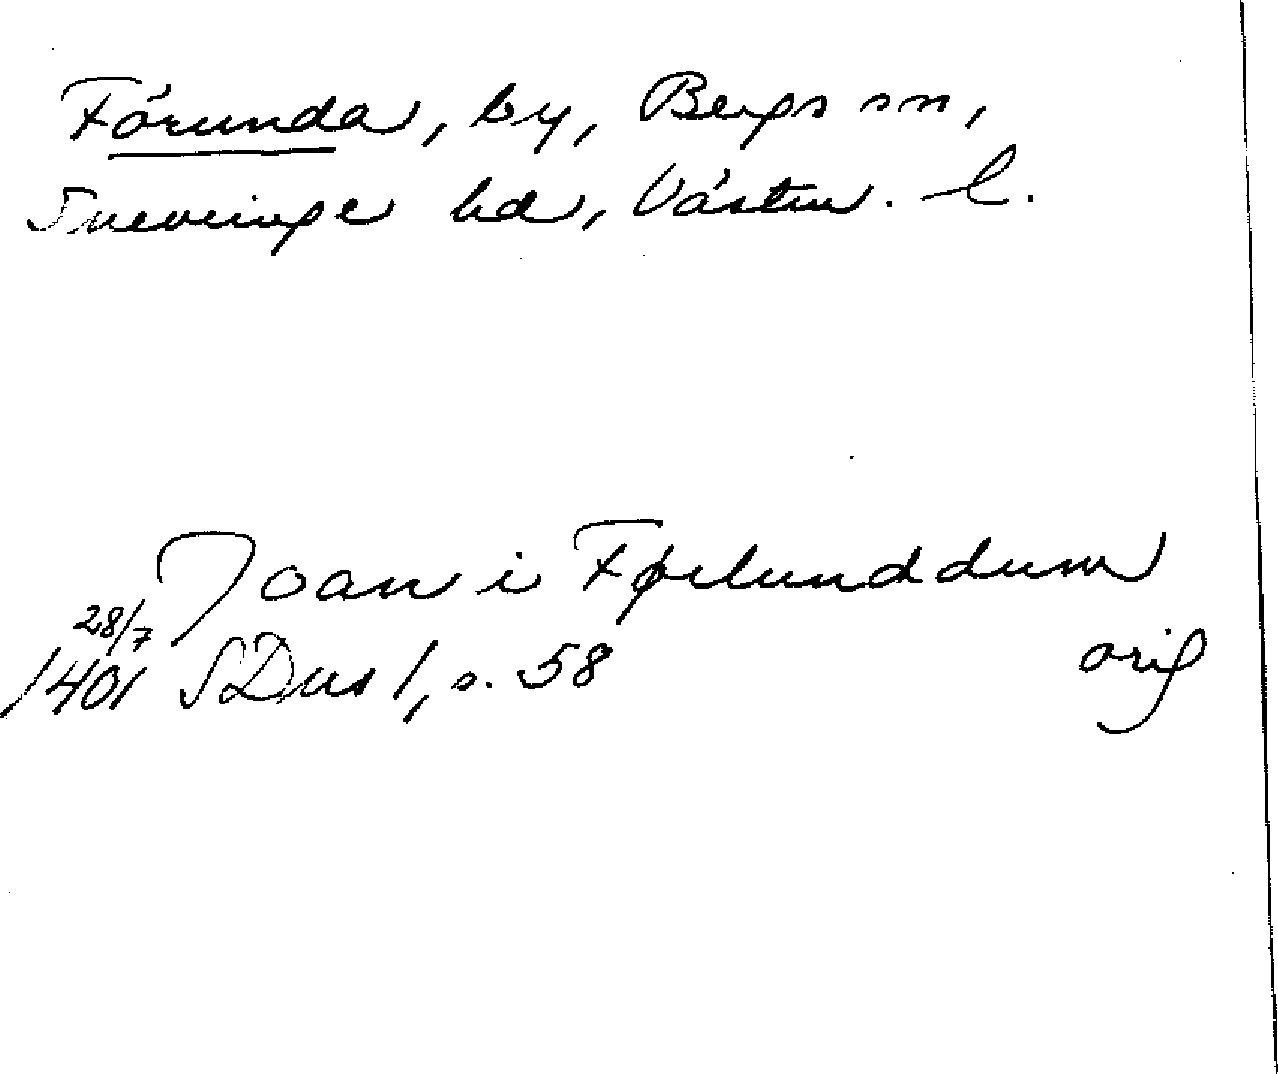 Förunda, by, Bergs sn,
Snevringe hd, Västm. l.
Joan i Førlunddum
28/7
1401 SDns 1, s. 58 orig